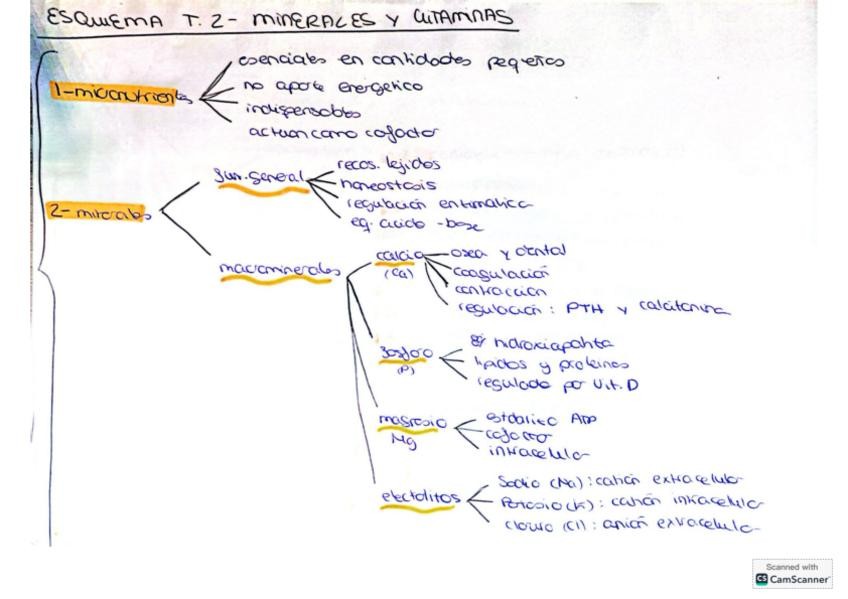 ESQUEMA T. 2 - MINERALES Y VITAMINAS
esenciales en cantidades pequeñas
1-micronutrientes
no aporte energetico
indispensables
actuan como cofactor
fun. general
recos. tejidos
homeostasis
regulación enzimatica
eq. acido - base
2- minerales
macrominerales
calcio
(Ca)
osea y dental
coagulación
contracción
regulación: PTH y calcitonina
fosforo
(P)
hidroxiapatita
lipidos y proteinas
regulado por Vit. D
magnesio
Mg
estabiliza
cofactor
intracelular
electolitos
Sodio (Na): catión extracelular
Potasio (K): catión intracelular
Cloruro (Cl): anión extracelular
Scanned with
CS CamScanner